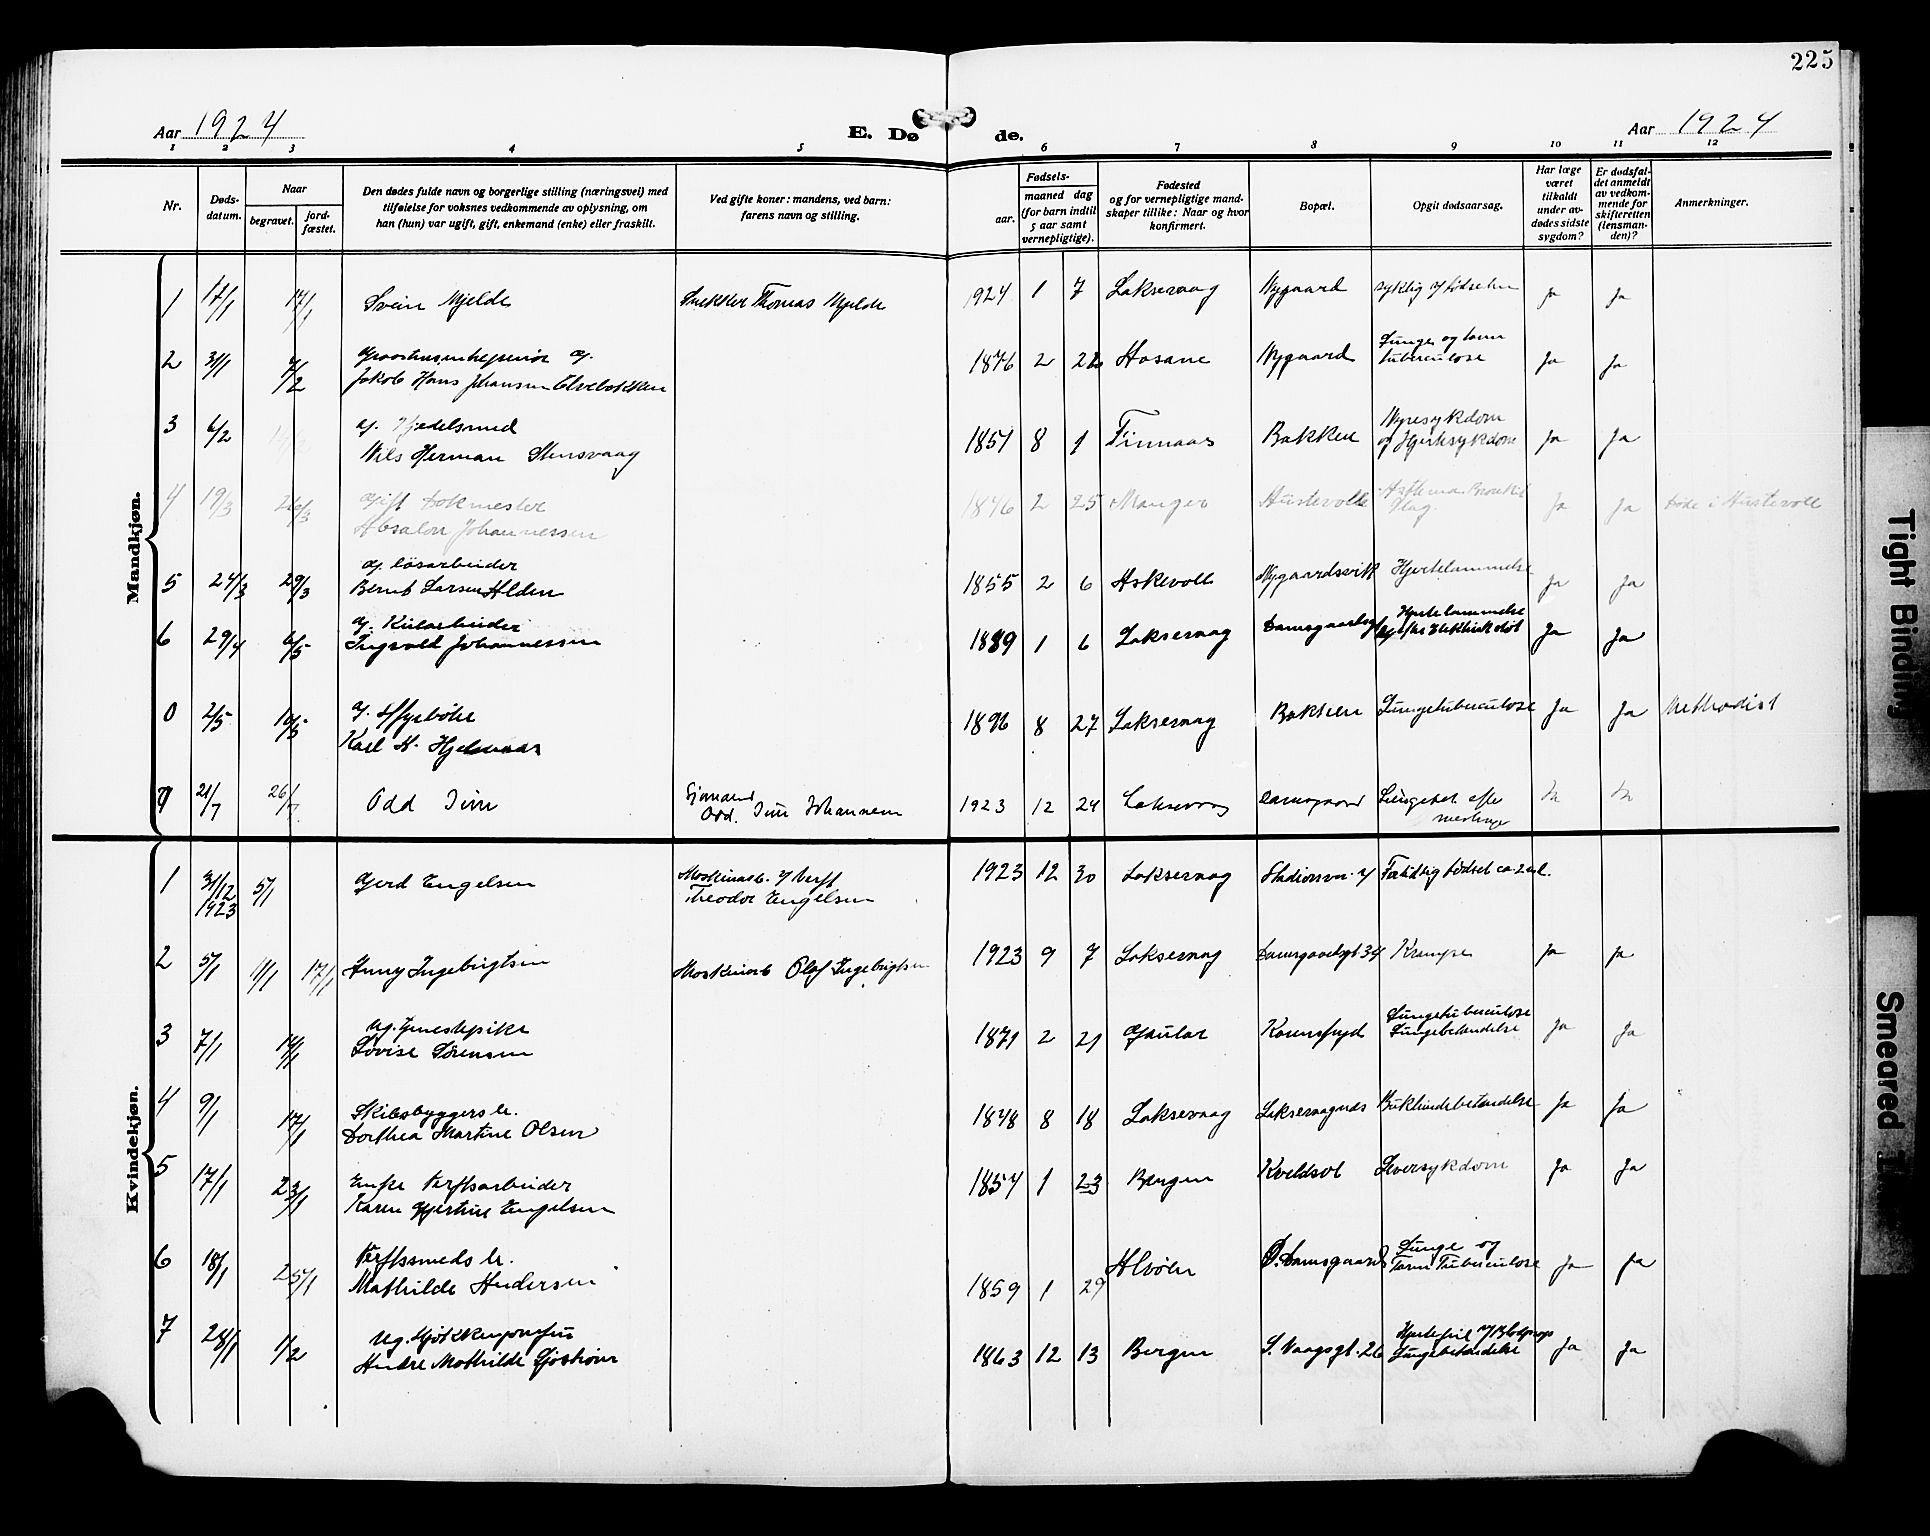 225
Aar 1924
E. Dø de.
Aar 1924
1 2 3 4 5 6 7 8 9 10 11 12
Nr.
Døds-
datum.
Naar
begravet.
jord-
fæstet.
Den dødes fulde navn og borgerlige stilling (næringsvei) med
tilføielse for voksnes vedkommende av oplysning, om
han (hun) var ugift, gift, enkemand (enke) eller fraskilt.
Ved gifte koner: mandens, ved barn:
farens navn og stilling.
Fødsels-
aar.
maaned dag
(for barn indtil
5 aar samt
vernepligtige).
Fødested
og for vernepligtige mand-
skaper tillike: Naar og hvor
konfirmert.
Bopæl.
Opgit dødsaarsag.
Har læge
været
tilkaldt
under av-
dødes sidste
sygdom?
Er dødsfal-
det anmeldt
av vedkom-
mende for
skifteretten
(lensman-
den)?
Anmerkninger.
Mandkjøn.
1 17/1 17/1 Svein Mjelde Thomas Mjelde 1924 1 7 Laksevaag Nygaard Ja Ja
2 31/1 7/2 Jakob Hans Johansen Elvebakken 1876 2 22 Hosane Nygaard Lunge og tarm
tuberculose Ja Ja
3 6/2 g. Kjedelsmed
Nils Herman Stensvaag 1851 8 1 Finnaas Bakken Nyresykdom
og Hjertesykdom Ja Ja
4 19/3 26/3 Gift Dokmester
Absalon Johannessen 1846 2 25 Manger Hustevolle Asthma Ja Ja Døde i Hustevoll
5 24/3 29/3 g. løsarbeider
Bernt Larsen Alden 1855 2 6 Askevoll Nygaardsvik Hjertelammelse Ja Ja
6 29/4 6/5 g. Kularbeider
Ingvald Johannessen 1889 1 6 Laksevaag Hjertelammelse
Ja Ja
0 2/5 10/5 g. Fyrbøter
Karl M. Hjelmaas 1896 8 27 Laksevaag Bakken Lungetuberculose Ja Ja Methodist
7 21/7 26/7 Odd Sjømand
Johannesen 1923 12 24 Laksevaag Damsgaard Ja Ja
Kvindekjøn.
1 31/12
1923 5/1 Gerd Engelsen Maskinarb. v/ Verft
Theodor Engelsen 1923 12 30 Laksevaag Stadionsv. 4 Fortidlig fødsel
2 5/1 11/1 17/1 Anny Ingebrigtsen Maskinarb Olaf Ingebrigtsen 1923 9 7 Laksevaag Damsgaardsgt 34 Krampe Ja Ja
3 7/1 14/1 Ug. Tjenestepike
Lovise Sørensen 1871 2 21 Gaular Lungetuberculose
Lungebetendelse Ja Ja
4 9/1 17/1 Skibsbyggers e.
Dorthea Martine Olsen 1848 8 18 Laksevaag Laksevaagnes Bukhindebetendelse Ja Ja
5 17/1 23/1 Enke Verftsarbeider
Karen Gjertine Engelsen 1854 1 23 Bergen Kveldsol Leversykdom Ja Ja
6 18/1 25/1 Verftssmeds e.
Mathilde Andersen 1859 1 29 Alvøen Ø. Damsgaard Lunge og
Tarm Tuberculose Ja Ja
7 28/1 1/2 Ug. Kjøkkenjomfru
Andre Mathilde Sjøstrøm 1863 12 13 Bergen S. Vaagsgt. 26 Hjertefeil
Lungebetendelse Ja Ja
Tight Binding
Smeared